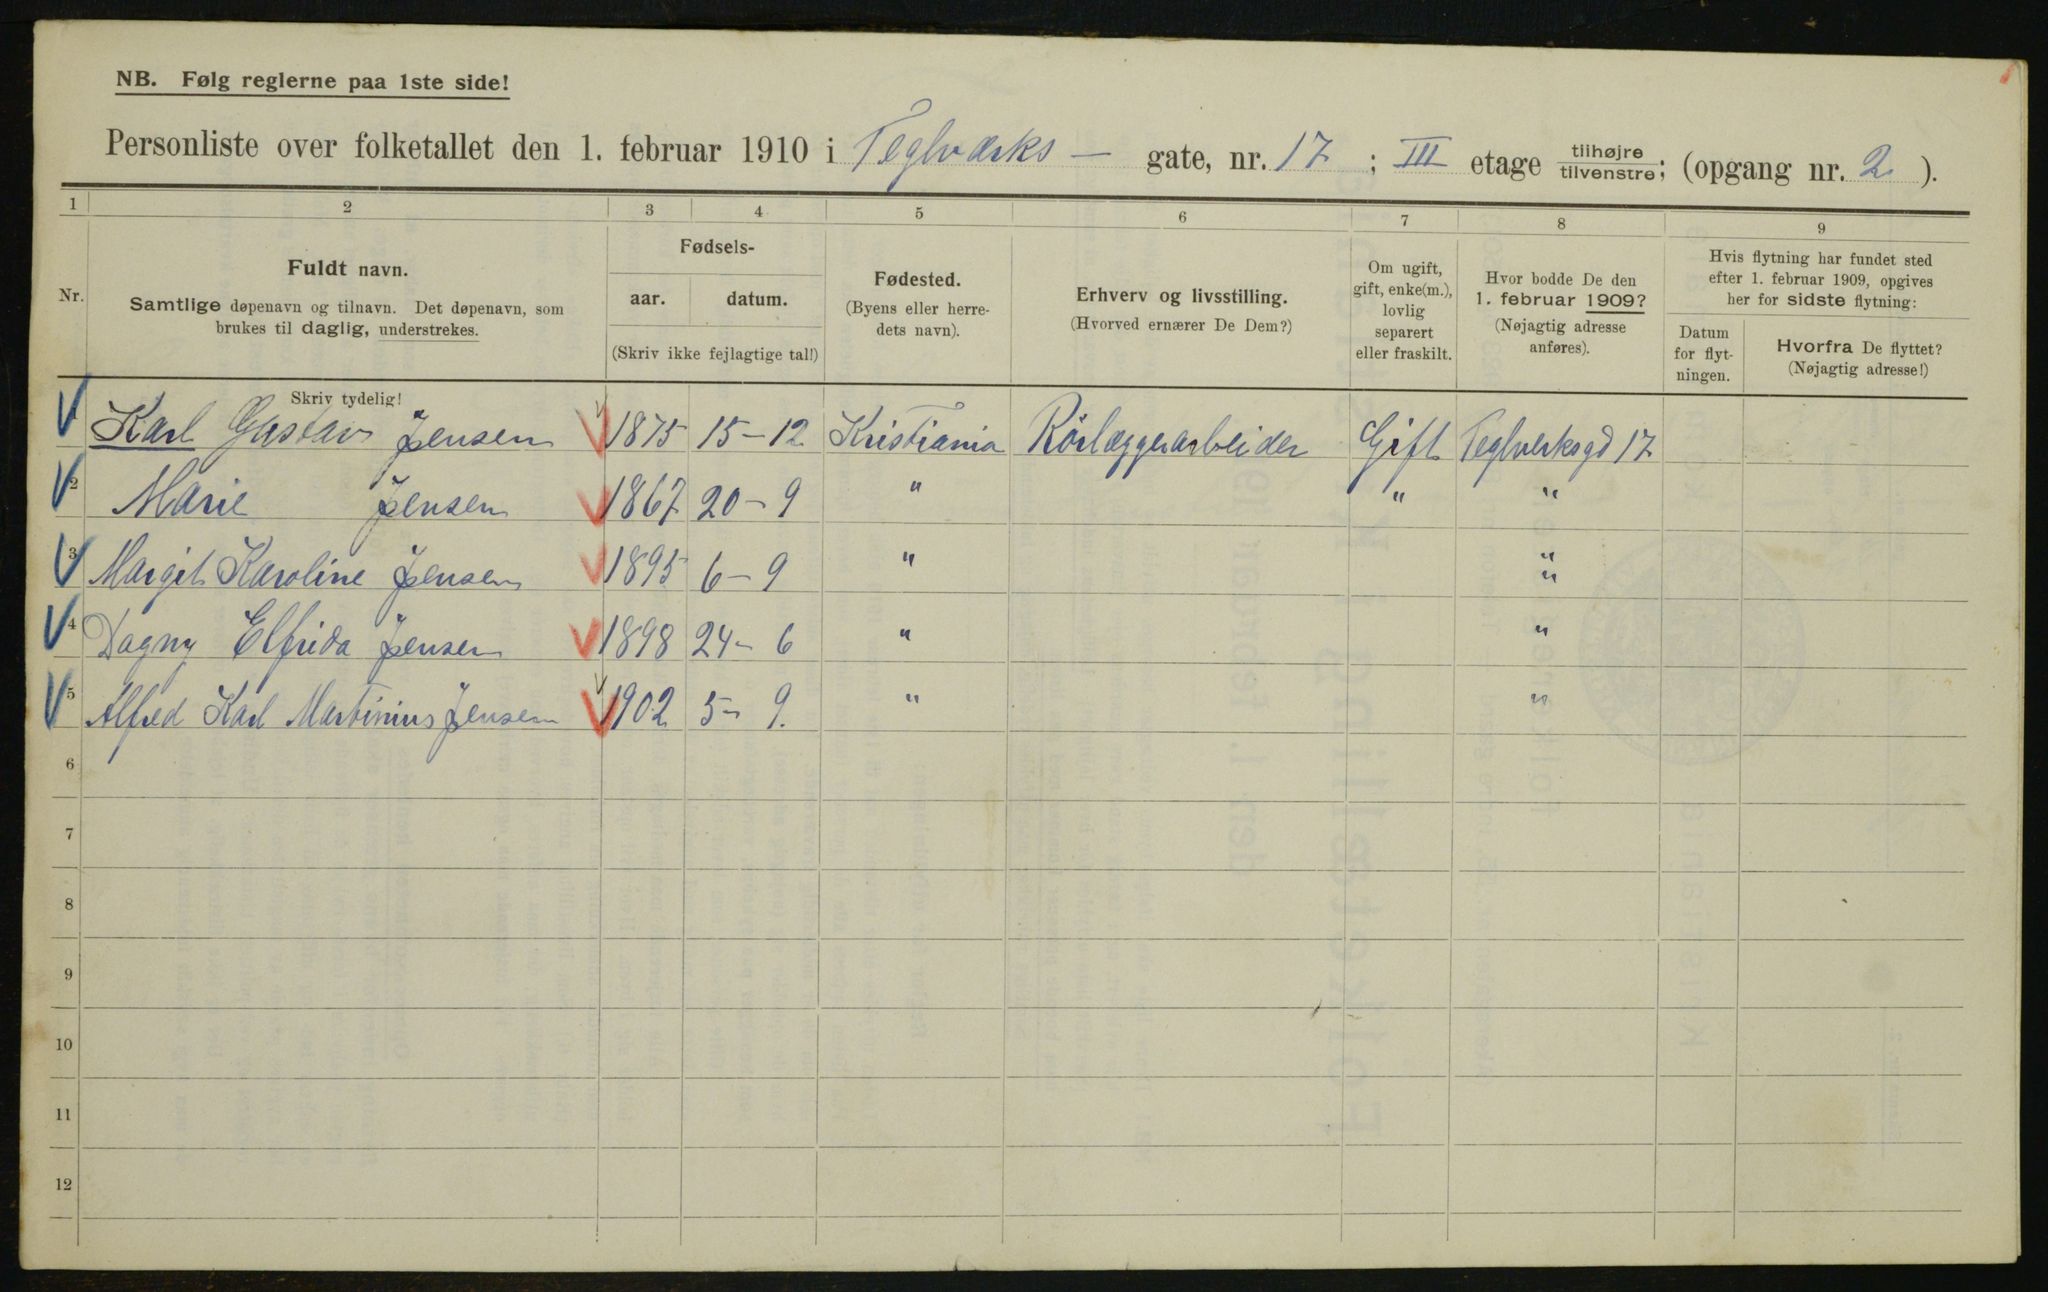 NB. Følg reglerne paa 1ste side!
Personliste over folketallet den 1. februar 1910 i Teglværks - gate, nr. 17 ; III etage tilhøjre tilvenstre; (opgang nr. 2 ).
1 2 3 4 5 6 7 8 9
Nr.
Fuldt navn.
Samtlige døpenavn og tilnavn. Det døpenavn, som
brukes til daglig, understrekes.
Fødsels-
aar. datum.
(Skriv ikke fejlagtige tal!)
Fødested.
(Byens eller herre-
dets navn).
Erhverv og livsstilling.
(Hvorved ernærer De Dem?)
Om ugift,
gift, enke(m.),
lovlig
separert
eller fraskilt.
Hvor bodde De den
1. februar 1909?
(Nøjagtig adresse
anføres).
Hvis flytning har fundet sted
efter 1. februar 1909, opgives
her for sidste flytning:
Datum
for flyt-
ningen.
Hvorfra De flyttet?
(Nøjagtig adresse!)
Skriv tydelig!
Karl Gustav Jensen 1875 15-12 Kristiania Rörlæggerarbeider Gift Teglverksgd 17
2 Marie Jensen 1867 20-9 " " "
3 Margit Karoline Jensen 1895 6-9 " " "
4 Dagny Elfrida Jensen 1898 24-6 " "
5 Alfred Karl Martinius Jensen 1902 5-9. " "
6
7
8
9
10
11
12